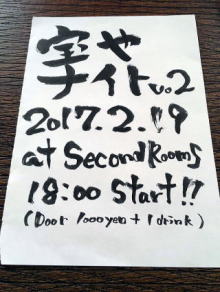 実や
ナイト vo.2
2017.2.19
at Second Rooms
18:00 Start!!
(Door 1000yen + 1drink)